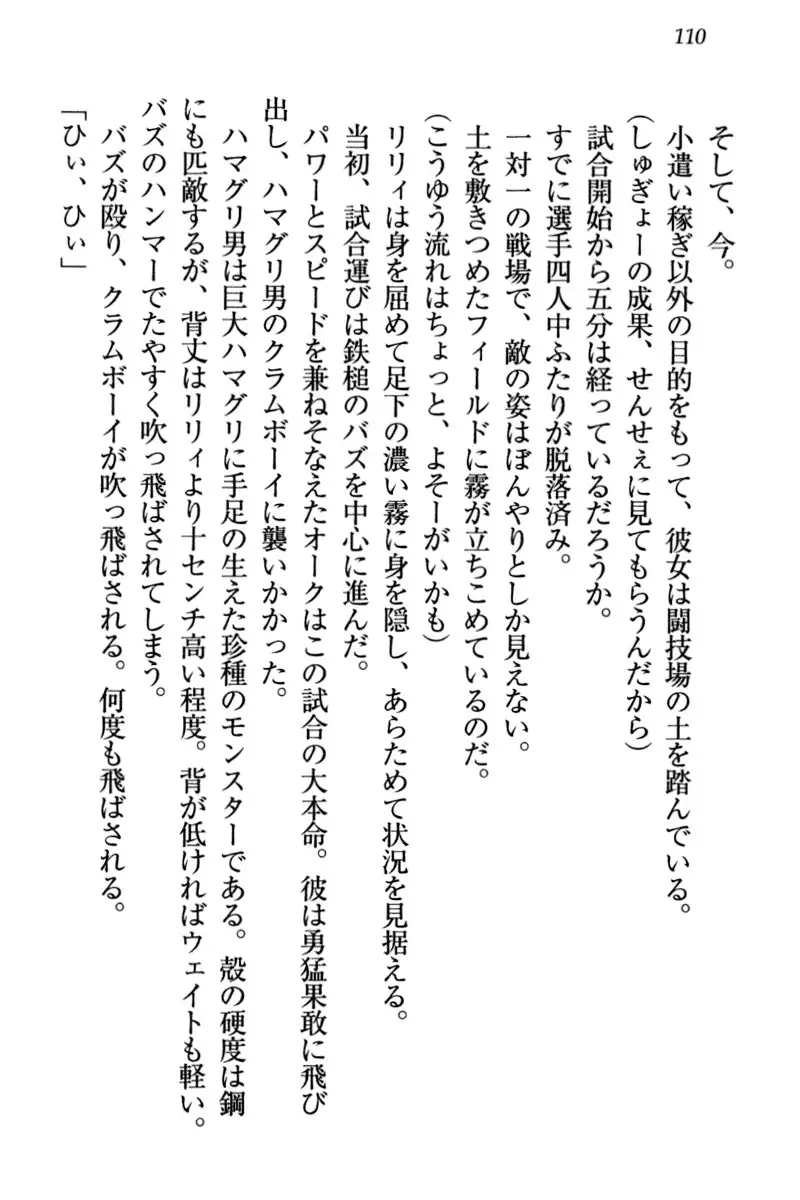 110
そして、今。
小遣い稼ぎ以外の目的をもって、彼女は闘技場の土を踏んでいる。
(しゅぎょーの成果、せんせぇに見てもらうんだから)
試合開始から五分は経っているだろうか。
すでに選手四人中ふたりが脱落済み。
一対一の戦場で、敵の姿はぼんやりとしか見えない。
土を敷きつめたフィールドに霧が立ちこめているのだ。
(こうゆう流れはちょっと、よそーがいかも)
リリィは身を屈めて足下の濃い霧に身を隠し、あらためて状況を見据える。
当初、試合運びは鉄槌のバズを中心に進んだ。
パワーとスピードを兼ねそなえたオークはこの試合の大本命。彼は勇猛果敢に飛び
出し、ハマグリ男のクラムボーイに襲いかかった。
ハマグリ男は巨大ハマグリに手足の生えた珍種のモンスターである。殻の硬度は鋼
にも匹敵するが、背丈はリリィより十センチ高い程度。背が低ければウェイトも軽い。
バズのハンマーでたやすく吹っ飛ばされてしまう。
バズが殴り、クラムボーイが吹っ飛ばされる。何度も飛ばされる。
「ひぃ、ひぃ」